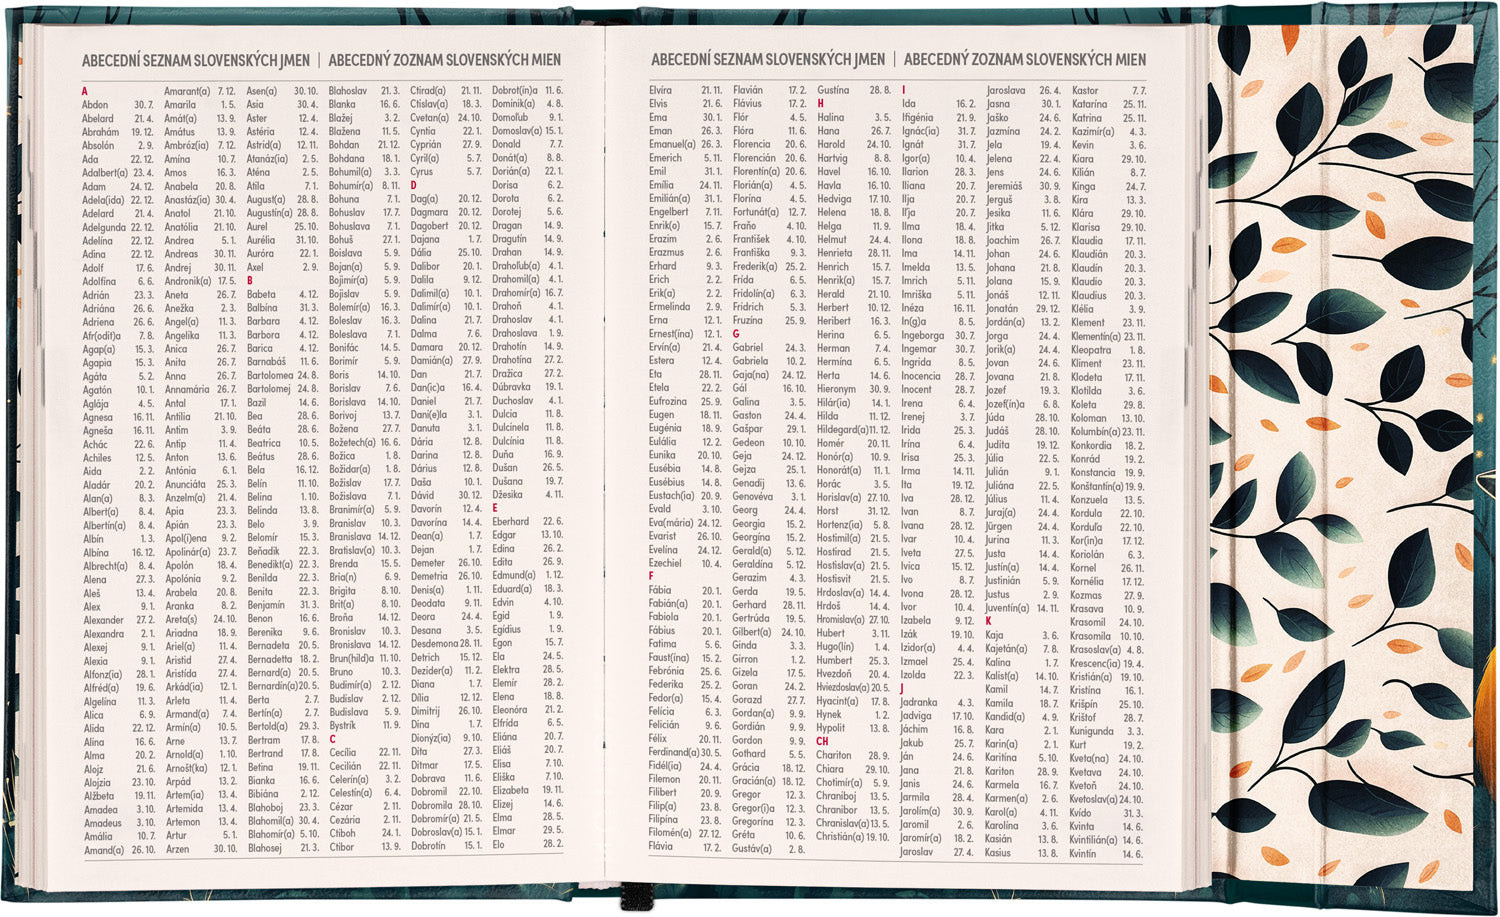 ABECEDNÍ SEZNAM SLOVENSKÝCH JMEN | ABECEDNÝ ZOZNAM SLOVENSKÝCH MIEN
A
Abdon 30. 7.
Abelard 21. 4.
Abrahám 19. 12.
Absolón 2. 9.
Ada 22. 12.
Adalbert(a) 23. 4.
Adam 24. 12.
Adela(ida) 22. 12.
Adelard 21. 4.
Adelgunda 22. 12.
Adelína 22. 12.
Adina 22. 12.
Adolf 17. 6.
Adolfína 6. 6.
Adrián 23. 3.
Adriána 26. 6.
Adriena 26. 6.
Afr(odiť)a 7. 8.
Agap(a) 15. 3.
Agapia 15. 3.
Agáta 5. 2.
Agatón 10. 1.
Aglája 4. 5.
Agnesa 16. 11.
Agneša 16. 11.
Achác 22. 6.
Achiles 12. 5.
Aida 2. 2.
Aladár 20. 2.
Alan(a) 8. 3.
Albert(a) 8. 4.
Albertín(a) 8. 4.
Albín 1. 3.
Albína 16. 12.
Albrecht(a) 8. 4.
Alena 27. 3.
Aleš 13. 4.
Alex 9. 1.
Alexander 27. 2.
Alexandra 2. 1.
Alexej 9. 1.
Alexia 9. 1.
Alfonz(ia) 28. 1.
Alfréd(a) 19. 6.
Algelína 11. 3.
Alica 6. 9.
Alida 22. 12.
Alina 16. 6.
Alma 20. 2.
Alojz 21. 6.
Alojzia 23. 10.
Alžbeta 19. 11.
Amadea 3. 10.
Amadeus 3. 10.
Amália 10. 7.
Amand(a) 26. 10.
Amarant(a) 7. 12.
Amarila 1. 5.
Amát(a) 13. 9.
Amátus 13. 9.
Ambróz(ia) 7. 12.
Amína 10. 7.
Amos 16. 3.
Anabela 20. 8.
Anastáz(ia) 30. 4.
Anatol 21. 10.
Anatólia 21. 10.
Andrea 5. 1.
Andreas 30. 11.
Andrej 30. 11.
Andronik(a) 17. 5.
Aneta 26. 7.
Anežka 2. 3.
Angel(a) 11. 3.
Angelika 11. 3.
Anica 26. 7.
Anita 26. 7.
Anna 26. 7.
Annamária 26. 7.
Antal 17. 1.
Antília 21. 10.
Antim 3. 9.
Antip 11. 4.
Anton 13. 6.
Antónia 6. 1.
Anunciáta 25. 3.
Anzelm(a) 21. 4.
Apia 23. 3.
Apián 23. 3.
Apol(i)ena 9. 2.
Apolinár(a) 23. 7.
Apolón 18. 4.
Apolónia 9. 2.
Arabela 20. 8.
Aranka 8. 2.
Areta(s) 24. 10.
Ariadna 18. 9.
Ariel(a) 11. 4.
Aristid 27. 4.
Aristída 27. 4.
Arkád(ia) 12. 1.
Arleta 11. 4.
Armand(a) 7. 4.
Armín(a) 10. 5.
Arne 13. 7.
Arnold(a) 1. 10.
Arnošt(ka) 12. 1.
Arpád 13. 2.
Artem(ia) 13. 4.
Artemida 13. 4.
Artemon 13. 4.
Artur 5. 1.
Arzen 30. 10.
Asen(a) 30. 10.
Asia 30. 4.
Aster 12. 4.
Astéria 12. 4.
Astrid(a) 12. 11.
Atanáz(ia) 2. 5.
Aténa 2. 5.
Atila 7. 1.
August(a) 28. 8.
Augustín(a) 28. 8.
Aurel 25. 10.
Aurélia 31. 10.
Auróra 22. 1.
Axel 2. 9.
B
Babeta 4. 12.
Balbína 31. 3.
Barbara 4. 12.
Barbora 4. 12.
Barica 4. 12.
Barnabáš 11. 6.
Bartolomea 24. 8.
Bartolomej 24. 8.
Bazil 14. 6.
Bea 28. 6.
Beáta 28. 6.
Beatrica 10. 5.
Beátus 28. 6.
Bela 16. 12.
Belín 11. 10.
Belina 1. 10.
Belinda 13. 8.
Belo 3. 9.
Belomír 15. 3.
Beňadik 22. 3.
Benedikt(a) 22. 3.
Benilda 22. 3.
Benita 22. 3.
Benjamín 31. 3.
Benon 16. 6.
Berenika 9. 6.
Bernadeta 20. 5.
Bernadetta 18. 2.
Bernard(a) 20. 5.
Bernardín(a) 20. 5.
Berta 2. 7.
Bertín(a) 2. 7.
Bertold(a) 29. 3.
Bertram 17. 8.
Bertrand 17. 8.
Betina 19. 11.
Bianka 16. 6.
Bibiána 2. 12.
Blahoboj 23. 3.
Blahomil(a) 30. 4.
Blahomír(a) 5. 10.
Blahosej 21. 3.
Blahoslav 21. 3.
Blanka 16. 6.
Blažej 3. 2.
Blažena 11. 5.
Bohdan 21. 12.
Bohdana 18. 1.
Bohumil(a) 3. 3.
Bohumír(a) 8. 11.
Bohuna 7. 1.
Bohuslav 17. 7.
Bohuslava 7. 1.
Bohuš 27. 1.
Boislava 5. 9.
Bojan(a) 5. 9.
Bojimír(a) 5. 9.
Bojislav 5. 9.
Bolemír(a) 16. 3.
Boleslav 16. 3.
Boleslava 7. 1.
Bonifác 14. 5.
Borimír 5. 9.
Boris 14. 10.
Borislav 7. 6.
Borislava 14. 10.
Borivoj 13. 7.
Božena 27. 7.
Božetech(a) 16. 6.
Božica 1. 8.
Božidar(a) 1. 8.
Božislav 17. 7.
Božislava 7. 1.
Branimír(a) 5. 9.
Branislav 10. 3.
Branislava 14. 12.
Bratislav(a) 10. 3.
Brenda 15. 5.
Bria(n) 6. 9.
Brigita 8. 10.
Brit(a) 8. 10.
Broňa 14. 12.
Bronislav 10. 3.
Bronislava 14. 12.
Brun(hild)a 11. 10.
Bruno 10. 3.
Budimír(a) 2. 12.
Budislav 2. 12.
Budislava 5. 9.
Bystrík 11. 9.
C
Cecília 22. 11.
Cecilián 22. 11.
Celerín(a) 3. 2.
Celestín(a) 6. 4.
Cézar 2. 11.
Cezária 2. 11.
Ctiboh 24. 1.
Ctibor 13. 9.
Ctirad(a) 21. 11.
Ctislav(a) 18. 3.
Cvetan(a) 24. 10.
Cyntia 22. 1.
Cyprián 27. 9.
Cyril(a) 5. 7.
Cyrus 5. 7.
D
Dag(a) 20. 12.
Dagmara 20. 12.
Dagobert 20. 12.
Dajana 1. 7.
Dália 25. 10.
Dalibor 20. 1.
Dalila 9. 12.
Dalimil(a) 10. 1.
Dalimír(a) 10. 1.
Dalina 21. 7.
Dalma 7. 6.
Damara 20. 12.
Damián(a) 27. 9.
Dan 21. 7.
Dan(ic)a 16. 4.
Daniel 21. 7.
Dani(e)la 3. 1.
Danuta 3. 1.
Dária 12. 8.
Darina 12. 8.
Dárius 12. 8.
Daša 10. 1.
Dávid 30. 12.
Davorín 12. 4.
Davorína 14. 4.
Dean(a) 1. 7.
Dejan 1. 7.
Demeter 26. 10.
Demetria 26. 10.
Denis(a) 1. 11.
Deodata 9. 11.
Deora 24. 4.
Desana 3. 5.
Desdemona 28. 11.
Detrich 15. 12.
Dezider(a) 11. 2.
Diana 1. 7.
Dília 12. 12.
Dimitrij 26. 10.
Dina 1. 7.
Dionýz(ia) 9. 10.
Dita 27. 3.
Ditmar 17. 5.
Dobrava 11. 6.
Dobromil 22. 10.
Dobromila 28. 10.
Dobromír(a) 21. 5.
Dobroslav(a) 15. 1.
Dobrotín 15. 1.
Dobrot(ín)a 11. 6.
Dominik(a) 4. 8.
Domoľub 9. 1.
Domoslav(a) 15. 1.
Donald 7. 7.
Donát(a) 8. 8.
Dorián(a) 22. 1.
Dorisa 6. 2.
Dorota 6. 2.
Dorotej 5. 6.
Dragan 14. 9.
Dragutín 14. 9.
Drahan 14. 9.
Drahoľub(a) 4. 1.
Drahomil(a) 4. 1.
Drahomír(a) 16. 7.
Drahoň 4. 1.
Drahoslav 4. 1.
Drahoslava 1. 9.
Drahotín 14. 9.
Drahotína 27. 2.
Dražica 27. 2.
Dúbravka 19. 1.
Duchoslav 4. 1.
Dulcia 11. 8.
Dulcinela 11. 8.
Dulcínia 11. 8.
Duňa 16. 9.
Dušan 26. 5.
Dušana 19. 7.
Džesika 4. 11.
E
Eberhard 22. 6.
Edgar 13. 10.
Edina 26. 2.
Edita 26. 9.
Edmund(a) 1. 12.
Eduard(a) 18. 3.
Edvin 4. 10.
Egid 1. 9.
Egídius 1. 9.
Egon 15. 7.
Ela 24. 5.
Elektra 28. 5.
Elemír 28. 2.
Elena 18. 8.
Eleonóra 21. 2.
Elfrída 6. 5.
Eliána 20. 7.
Eliáš 20. 7.
Elisa 7. 10.
Eliška 7. 10.
Elizabeta 19. 11.
Elizej 14. 6.
Elma 28. 5.
Elmar 29. 5.
Elo 28. 2.
ABECEDNÍ SEZNAM SLOVENSKÝCH JMEN | ABECEDNÝ ZOZNAM SLOVENSKÝCH MIEN
Elvíra 21. 11.
Elvis 21. 6.
Ema 30. 1.
Eman 26. 3.
Emanuel(a) 26. 3.
Emerich 5. 11.
Emil 31. 1.
Emília 24. 11.
Emilián(a) 31. 1.
Engelbert 7. 11.
Enrik(o) 15. 7.
Erazim 2. 6.
Erazmus 2. 6.
Erhard 9. 3.
Erich 2. 2.
Erik(a) 2. 2.
Ermelinda 2. 9.
Erna 12. 1.
Ernest(ína) 12. 1.
Ervín(a) 21. 4.
Estera 12. 4.
Eta 28. 11.
Etela 22. 2.
Eufrozina 25. 9.
Eugen 18. 11.
Eugénia 18. 9.
Eulália 12. 2.
Eunika 20. 10.
Eusébia 14. 8.
Eusébius 14. 8.
Eustach(ia) 20. 9.
Evald 3. 10.
Eva(mária) 24. 12.
Evarist 26. 10.
Evelína 24. 12.
Ezechiel 10. 4.
F
Fábia 20. 1.
Fabián(a) 20. 1.
Fabiola 20. 1.
Fábius 20. 1.
Fatima 5. 6.
Faust(ína) 15. 2.
Febrónia 25. 6.
Federika 25. 2.
Fedor(a) 15. 4.
Felícia 6. 3.
Felicián 9. 6.
Félix 20. 11.
Ferdinand(a) 30. 5.
Fidél(ia) 24. 4.
Filemon 20. 11.
Filibert 20. 9.
Filip(a) 23. 8.
Filipína 23. 8.
Filomén(a) 27. 12.
Flávia 17. 2.
Flavián 17. 2.
Flávius 17. 2.
Flór 4. 5.
Flóra 11. 6.
Florencia 20. 6.
Florencián 20. 6.
Florentín(a) 20. 6.
Florián(a) 4. 5.
Florína 4. 5.
Fortunát(a) 12. 7.
Fraňo 4. 10.
František 4. 10.
Františka 9. 3.
Frederik(a) 25. 2.
Frída 6. 5.
Fridolín(a) 6. 3.
Fridrich 5. 3.
Fruzína 25. 9.
G
Gabriel 24. 3.
Gabriela 10. 2.
Gaja(na) 24. 12.
Gál 16. 10.
Galina 3. 5.
Gaston 24. 4.
Gašpar 29. 1.
Gedeon 10. 10.
Geja 24. 12.
Gejza 25. 1.
Genadij 13. 6.
Genovéva 3. 1.
Georg 24. 4.
Georgia 15. 2.
Georgína 15. 2.
Gerald(a) 5. 12.
Geraldína 5. 12.
Gerazim 4. 3.
Gerda 19. 5.
Gerhard 28. 11.
Gertrúda 19. 5.
Gilbert(a) 24. 10.
Ginda 3. 3.
Girron 1. 2.
Gizela 17. 5.
Goran 24. 2.
Gorazd 27. 7.
Gordan(a) 9. 9.
Gordián 9. 9.
Gordon 9. 9.
Gothard 5. 5.
Grácia 18. 12.
Gracián(a) 18. 12.
Gregor 12. 3.
Gregor(i)a 12. 3.
Gregorína 12. 3.
Gréta 10. 6.
Gustáv(a) 2. 8.
Gustína 28. 8.
H
Halina 3. 5.
Hana 26. 7.
Harold 24. 10.
Hartvig 8. 8.
Havel 16. 10.
Havla 16. 10.
Hedviga 17. 10.
Helena 18. 8.
Helga 11. 9.
Helmut 24. 4.
Henrieta 28. 11.
Henrich 15. 7.
Henrik(a) 15. 7.
Herald 21. 10.
Herbert 10. 12.
Heribert 16. 3.
Herina 6. 5.
Herman 7. 4.
Hermína 6. 5.
Herta 14. 6.
Hieronym 30. 9.
Hilár(ia) 14. 1.
Hilda 11. 12.
Hildegard(a) 11. 12.
Homér 20. 11.
Honór(a) 10. 9.
Honorát(a) 11. 1.
Horác 3. 5.
Horislav(a) 27. 10.
Horst 31. 12.
Hortenz(ia) 5. 8.
Hostimil(a) 21. 5.
Hostirad 21. 5.
Hostislav(a) 21. 5.
Hostisvit 21. 5.
Hrdoslav(a) 14. 4.
Hrdoš 14. 4.
Hromislav(a) 27. 10.
Hubert 3. 11.
Hugo(lín) 1. 4.
Humbert 25. 3.
Hvezdoň 20. 4.
Hviezdoslav(a) 20. 5.
Hyacint(a) 17. 8.
Hynek 1. 2.
Hypolit 13. 8.
CH
Chariton 28. 9.
Chiara 29. 10.
Chotimír(a) 5. 9.
Chraniboj 13. 5.
Chranibor 13. 5.
Chranislav(a) 13. 5.
Christián(a) 19. 10.
I
Ida 16. 2.
Ifigénia 21. 9.
Ignác(ia) 31. 7.
Ignát 31. 7.
Igor(a) 10. 4.
Ilarion 28. 3.
Iliana 20. 7.
Ilja 20. 7.
Iľja 20. 7.
Ilma 18. 4.
Ilona 18. 8.
Ima 14. 11.
Imelda 13. 5.
Imrich 5. 11.
Imriška 5. 11.
Inéza 16. 11.
In(g)a 8. 5.
Ingeborga 30. 7.
Ingemar 30. 7.
Ingrida 8. 5.
Inocencia 28. 7.
Inocent 28. 7.
Irena 6. 4.
Irenej 3. 7.
Irida 25. 3.
Irína 6. 4.
Irisa 25. 3.
Irma 14. 11.
Ita 19. 12.
Iva 28. 12.
Ivan 8. 7.
Ivana 28. 12.
Ivar 10. 4.
Iveta 27. 5.
Ivica 15. 12.
Ivo 8. 7.
Ivona 28. 12.
Ivor 10. 4.
Izabela 9. 12.
Izák 19. 10.
Izidor(a) 4. 4.
Izmael 25. 4.
Izolda 22. 3.
J
Jadranka 4. 3.
Jadviga 17. 10.
Jáchim 16. 8.
Jakub 25. 7.
Ján 24. 6.
Jana 21. 8.
Janis 24. 6.
Jarmila 28. 4.
Jarolím(a) 30. 9.
Jaromil 2. 6.
Jaromír(a) 18. 2.
Jaroslav 27. 4.
Jaroslava 26. 4.
Jasna 30. 1.
Jaško 24. 6.
Jazmína 24. 2.
Jela 19. 4.
Jelena 22. 4.
Jens 24. 6.
Jeremiáš 30. 9.
Jerguš 3. 8.
Jesika 11. 6.
Jitka 5. 12.
Joachim 26. 7.
Johan 24. 6.
Johana 21. 8.
Jolana 15. 9.
Jonáš 12. 11.
Jonatán 29. 12.
Jordán(a) 13. 2.
Jorga 24. 4.
Jorik(a) 24. 4.
Jovan 24. 6.
Jovana 21. 8.
Jozef 19. 3.
Jozef(ín)a 6. 8.
Júda 28. 10.
Judáš 28. 10.
Judita 19. 12.
Júlia 22. 5.
Julián 9. 1.
Juliána 22. 5.
Július 11. 4.
Juraj(a) 24. 4.
Jürgen 24. 4.
Jurina 11. 3.
Justa 14. 4.
Justín(a) 14. 4.
Justinián 5. 9.
Justus 2. 9.
Juventín(a) 14. 11.
K
Kaja 3. 6.
Kajetán(a) 7. 8.
Kalina 1. 7.
Kalist(a) 14. 10.
Kamil 14. 7.
Kamila 18. 7.
Kandid(a) 4. 9.
Kara 2. 1.
Karin(a) 2. 1.
Karitína 5. 10.
Kariton 28. 9.
Karmela 16. 7.
Karmen(a) 2. 6.
Karol(a) 4. 11.
Karolína 3. 6.
Kasián 13. 8.
Kasius 13. 8.
Kastor 7. 7.
Katarína 25. 11.
Katrina 25. 11.
Kazimír(a) 4. 3.
Kevin 3. 6.
Kiara 29. 10.
Kilián 8. 7.
Kinga 24. 7.
Kira 13. 3.
Klára 29. 10.
Klarisa 29. 10.
Klaudia 17. 11.
Klaudián 20. 3.
Klaudín 20. 3.
Klaudio 20. 3.
Klaudius 20. 3.
Klélia 3. 9.
Klement 23. 11.
Klementín(a) 23. 11.
Kleopatra 1. 8.
Kliment 23. 11.
Klodeta 17. 11.
Klotilda 3. 6.
Koleta 29. 8.
Koloman 13. 10.
Kolumbín(a) 23. 11.
Konkordia 18. 2.
Konrád 19. 2.
Konstancia 19. 9.
Konštantín(a) 19. 9.
Konzuela 13. 5.
Kordula 22. 10.
Korduľa 22. 10.
Kor(in)a 17. 12.
Koriolán 6. 3.
Kornel 26. 11.
Kornélia 17. 12.
Kozmas 27. 9.
Krasava 10. 9.
Krasomil 24. 10.
Krasomila 10. 10.
Krasoslav(a) 4. 8.
Krescenc(ia) 19. 4.
Kristián(a) 19. 10.
Kristína 16. 1.
Krišpín 25. 10.
Krištof 28. 7.
Kunigunda 3. 3.
Kurt 19. 2.
Kveta(na) 24. 10.
Kvetava 24. 10.
Kvetoň 24. 10.
Kvetoslav(a) 24. 10.
Kvído 31. 3.
Kvinta 14. 6.
Kvintilián(a) 14. 6.
Kvintín 14. 6.